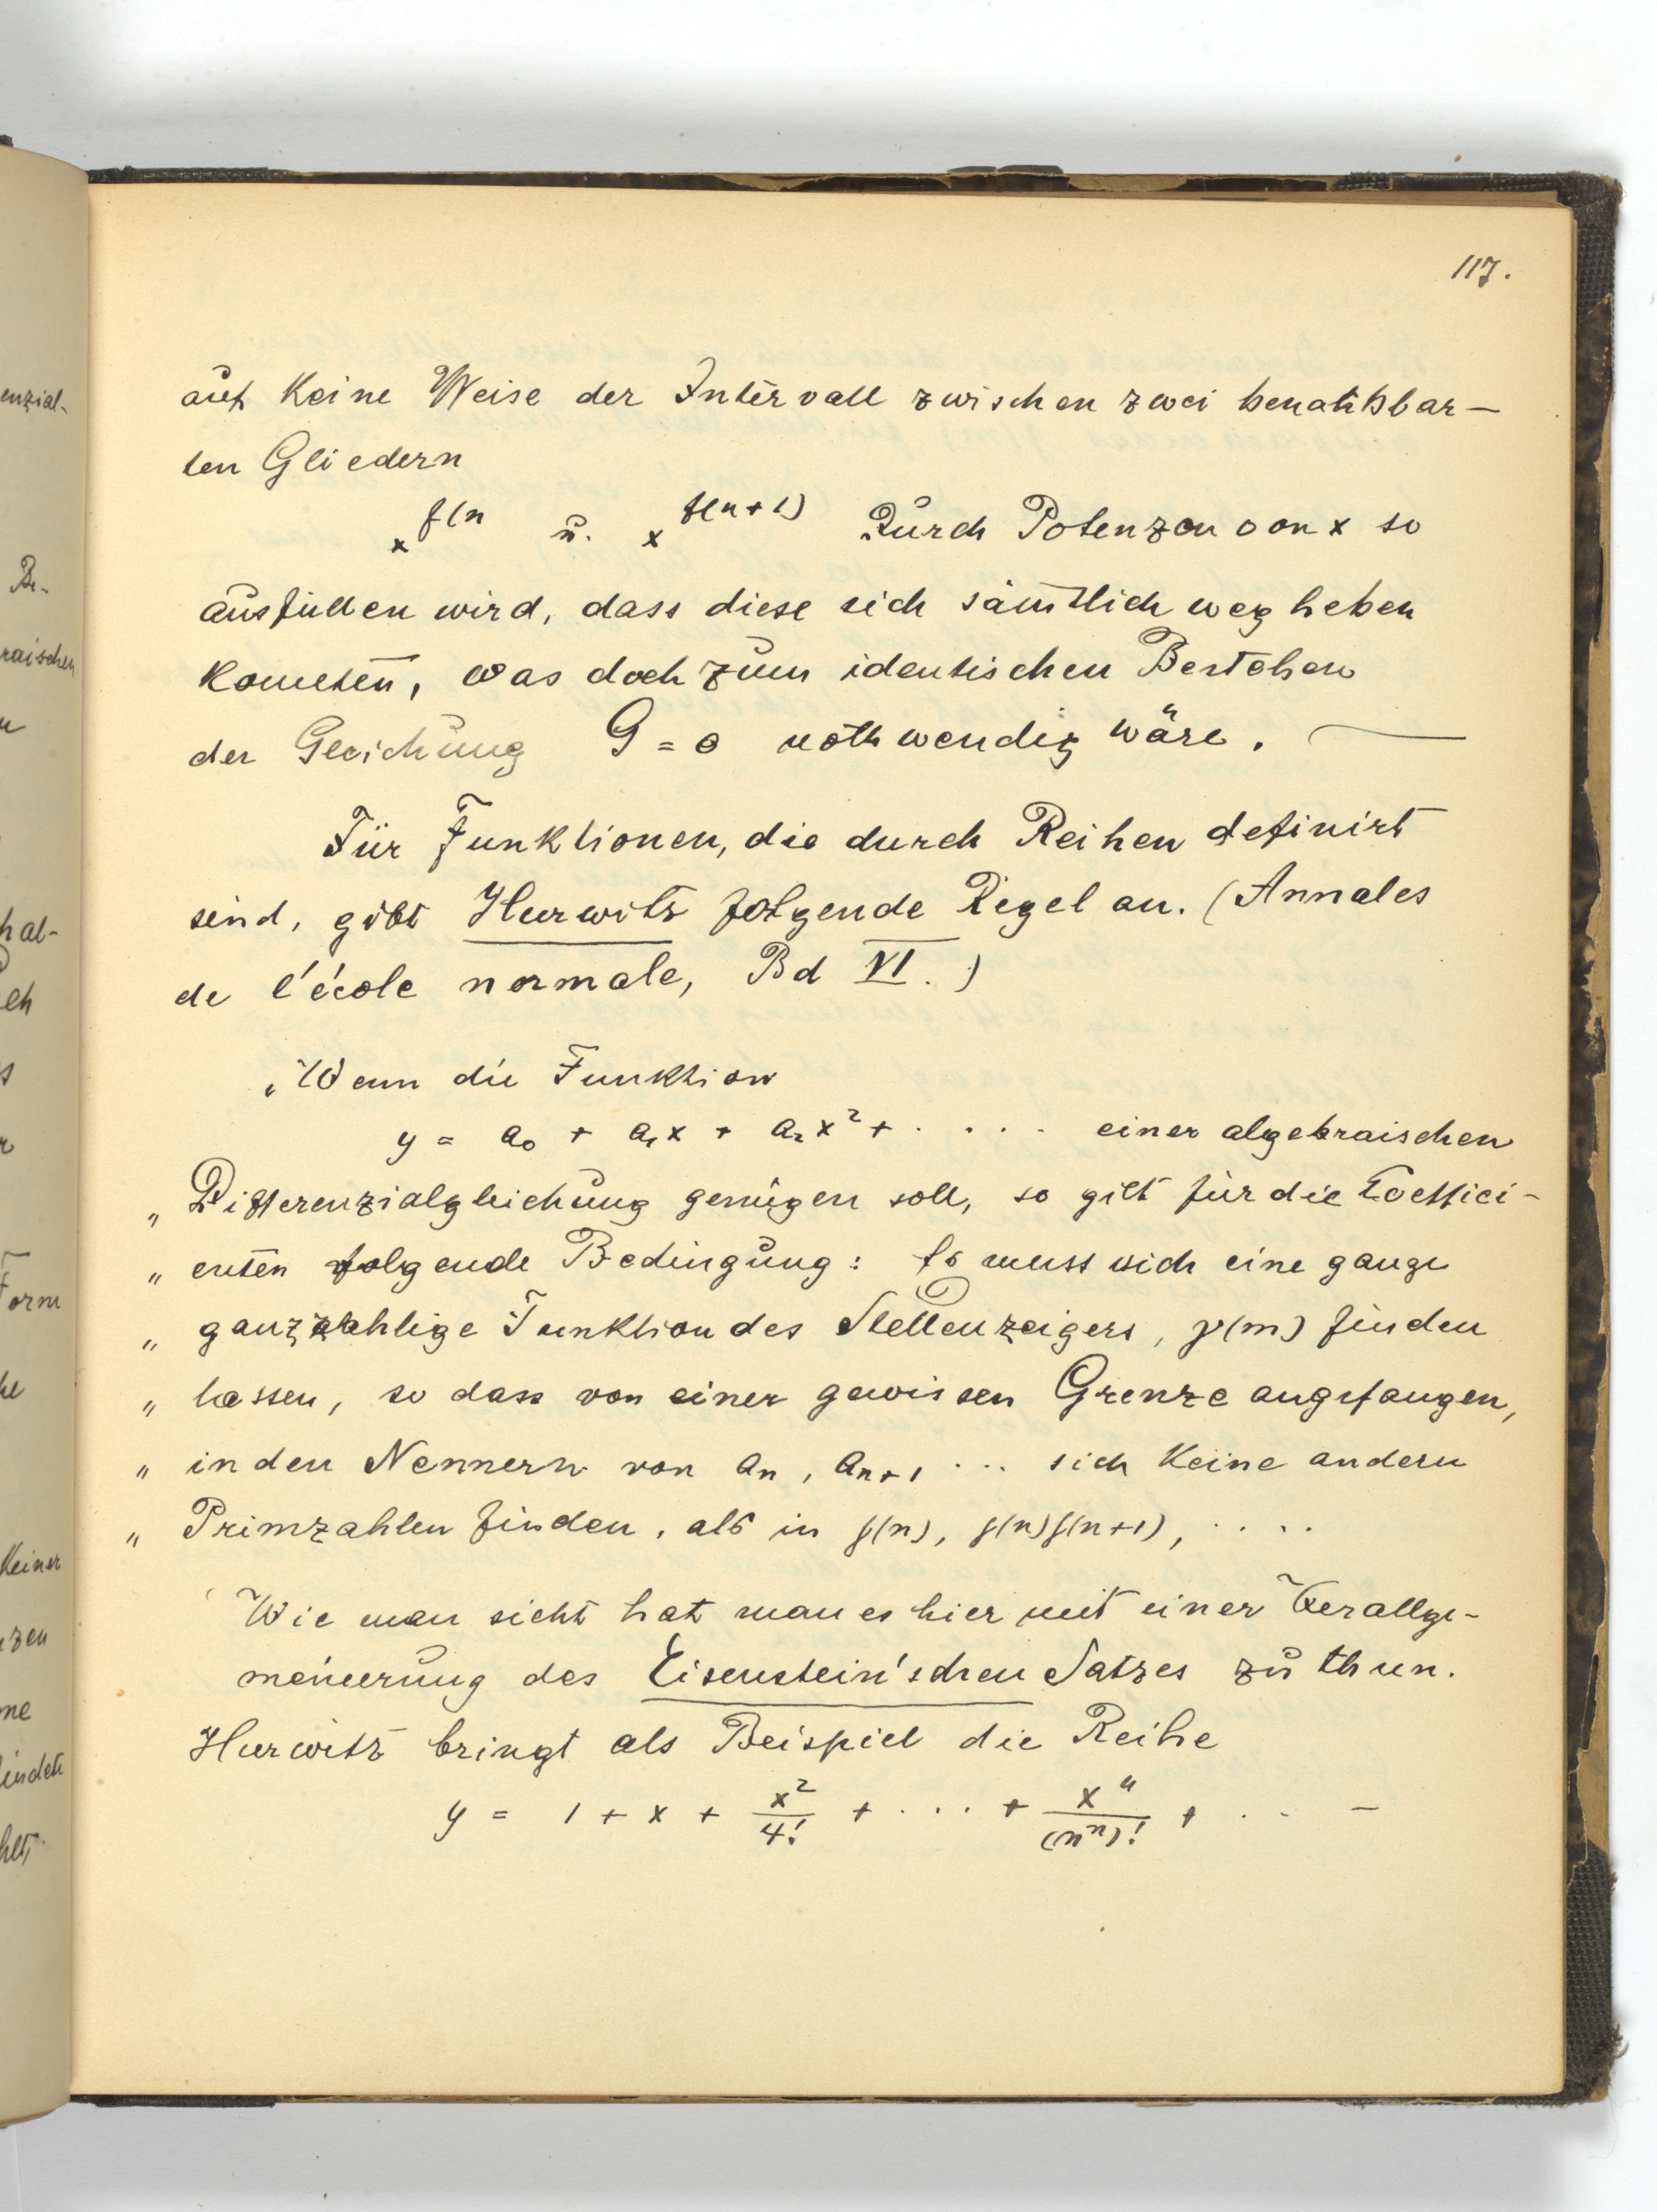 117.
auf keine Weise der Intervall zwischen zwei benachbar-
ten Gliedern
x^{f(n} u. x^{f(n+1)} Durch Potenzen von x so
ausfüllen wird, dass diese sich sämtlich weg heben
könnten, was doch zum identischen Bestehen
der Gleichung G = 0 nothwendig wäre.
Für Funktionen, die durch Reihen definirt
sind, gibt Hurwitz folgende Regel an. (Annales
de l'école normale, Bd VI.)
„Wenn die Funktion
y = a₀ + a₁x + a₂x² + · · · · einer algebraischen
„ Differenzialgleichung genügen soll, so gilt für die Coeffici-
„ enten folgende Bedingung: Es muss sich eine ganze
„ ganzzahlige Funktion des Stellenzeigers, f(m) finden
„ lassen, so dass von einer gewissen Grenze angefangen,
„ in den Nennern von aₙ, aₙ₊₁ ··· sich keine andern
„ Primzahlen finden, als in f(n), f(n)f(n+1), · · · ·
Wie man sieht hat man es hier mit einer Verallge-
meinerung des Eisenstein'schen Satzes zu thun.
Hurwitz bringt als Beispiel die Reihe
y = 1 + x + x²/4! + · · · + xⁿ/(nⁿ)! + · · –
enzial-
Be-
raischen
hal-
Form
Keiner
zen
me
indet